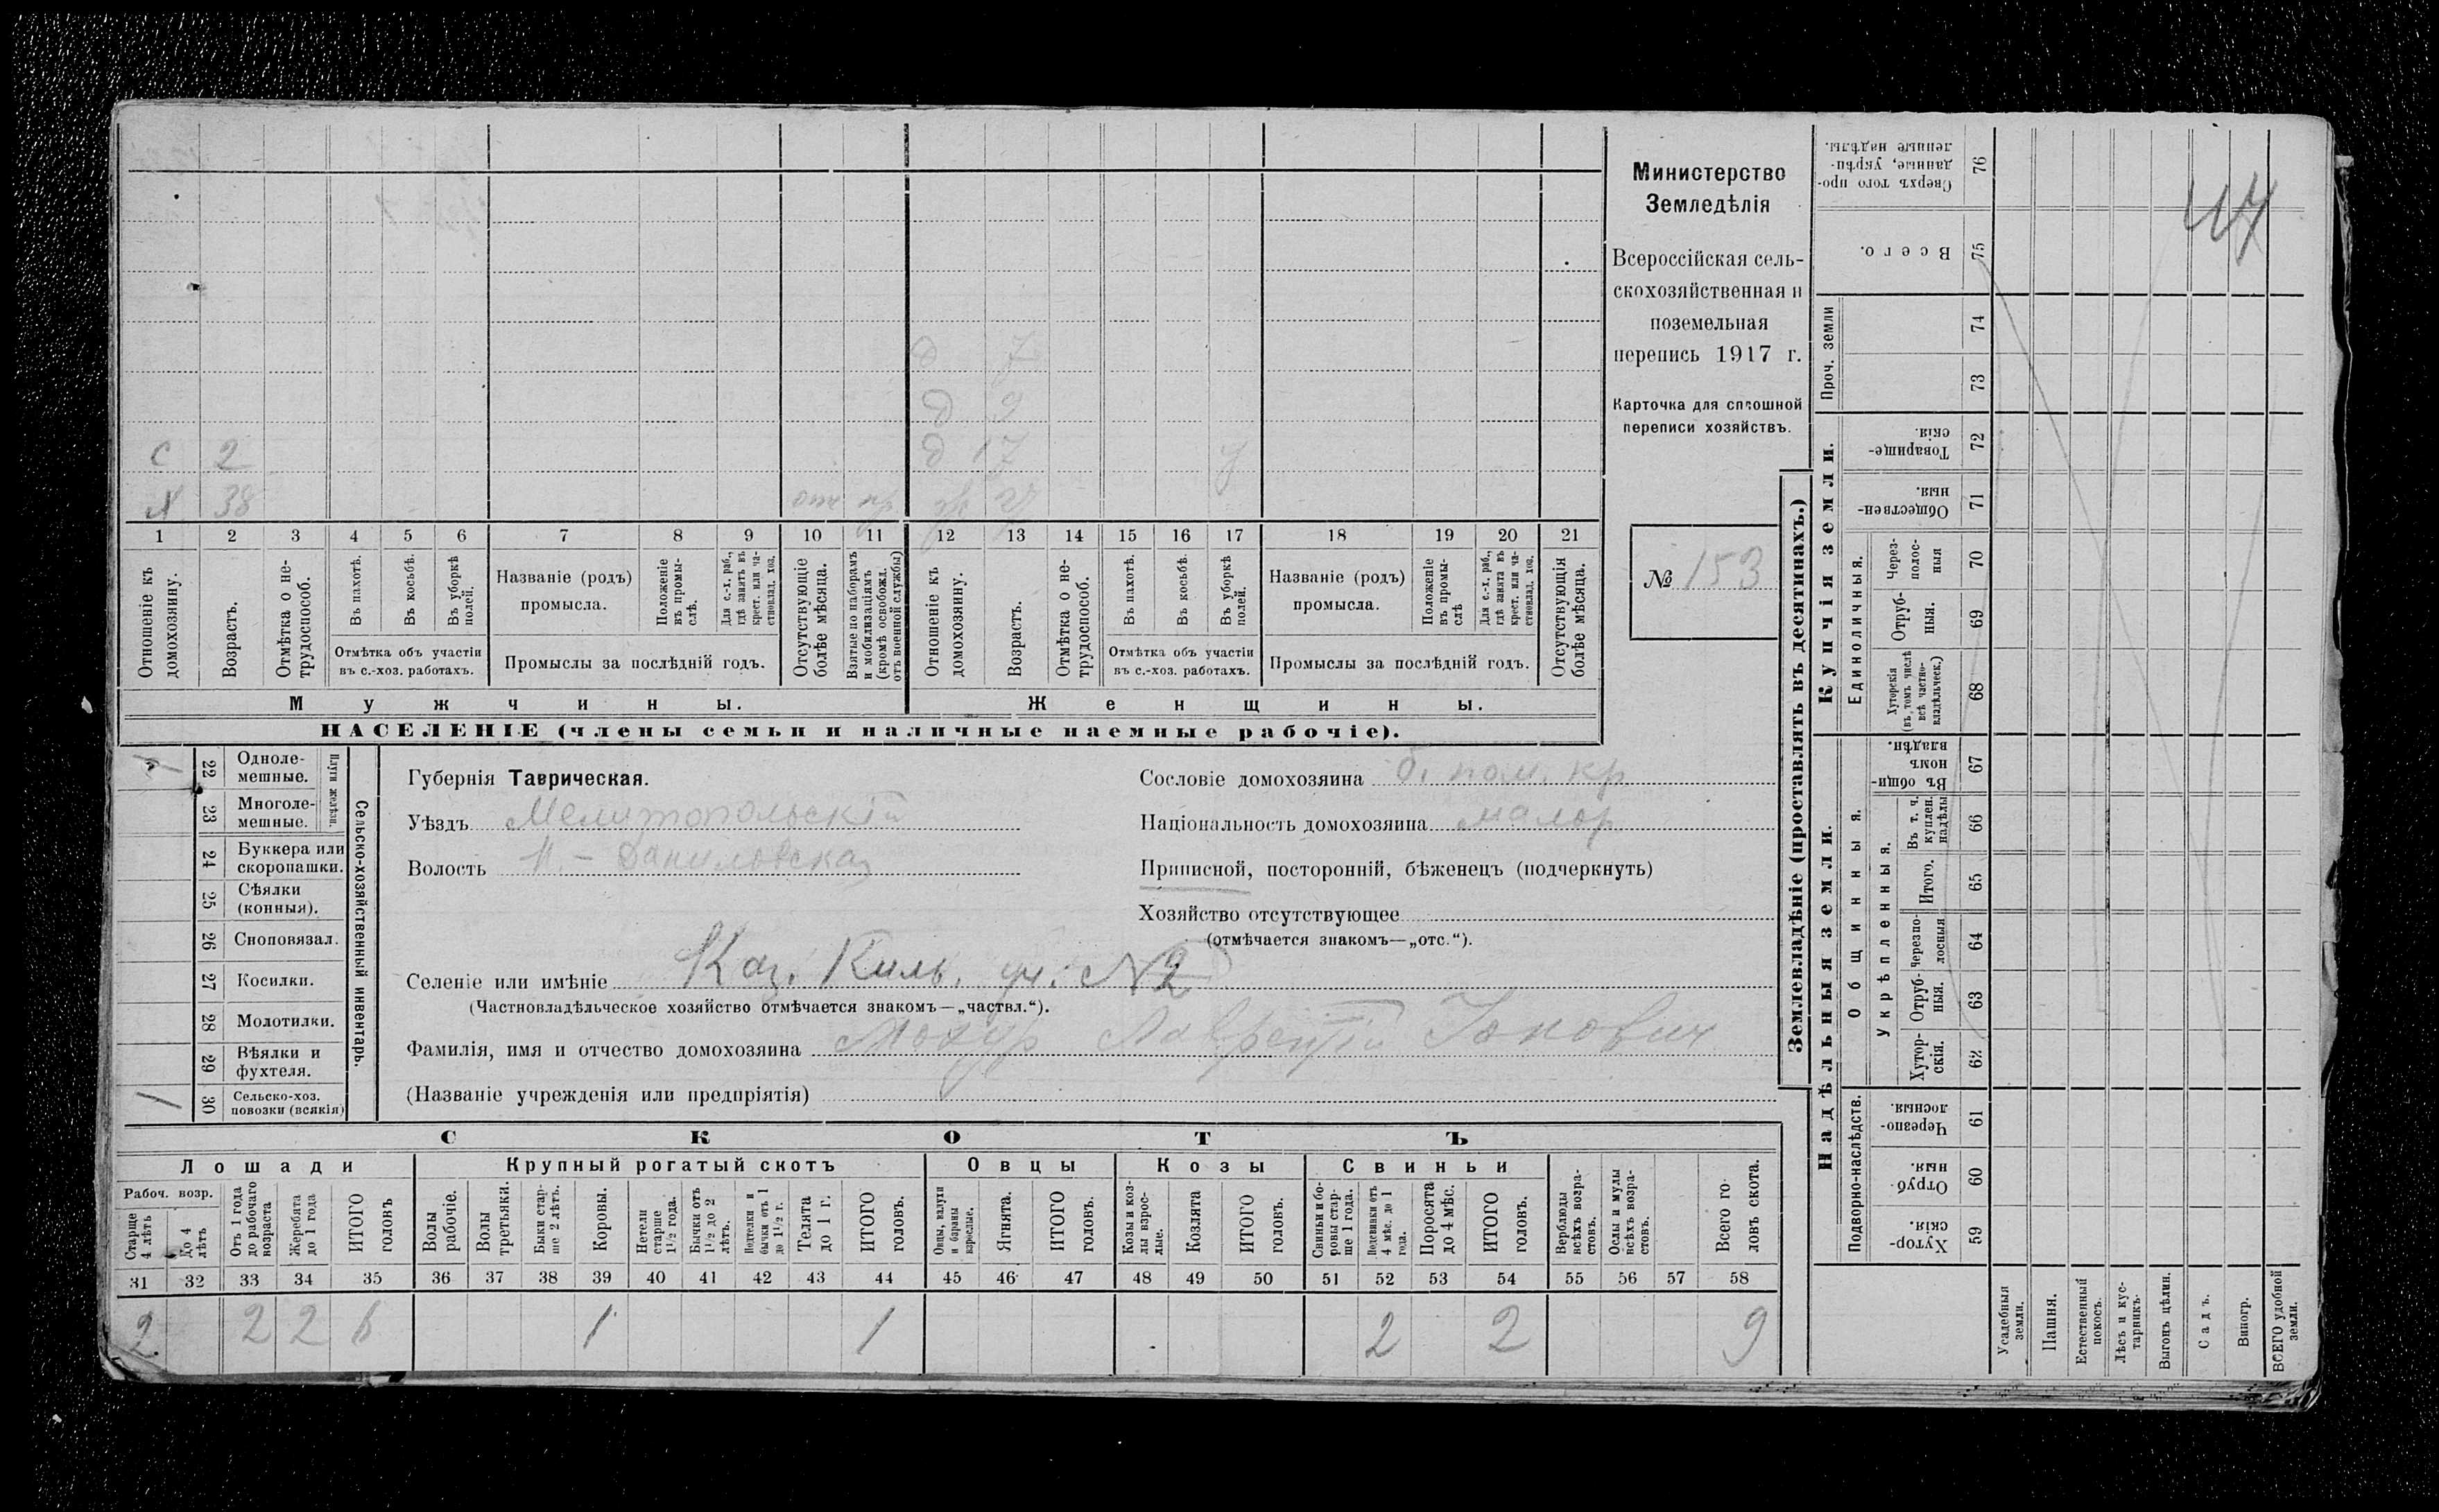 Министерство
Земледѣлія
Всероссійская сель-
скохозяйственная и
поземельная
перепись 1917 г.
Карточка для сплошной
переписи хозяйствъ.
№ 153
Д 7
Д 9
С 2 Д 17 у
Х 38 отс
1 2 3 4 5 6 7 8 9 10 11 12 13 14 15 16 17 18 19 20 21
Отношеніе къ домохозяину.
Возрастъ.
Отмѣтка о не-трудоспособ.
Въ пахотѣ.
Въ косьбѣ.
Въ уборкѣ полей.
Отмѣтка объ участіи
въ с.-хоз. работахъ.
Названіе (родъ)
промысла.
Положеніе въ промы-слѣ.
Для с.-х. раб., гдѣ занятъ въ крест. или ча-стновлад. хоз.
Промыслы за послѣдній годъ.
Отсутствующіе болѣе мѣсяца.
Взятые по наборамъ и мобилизаціямъ (кромѣ освобожд. отъ военной службы)
Отношеніе къ домохозяину.
Возрастъ.
Отмѣтка о не-трудоспособ.
Въ пахотѣ.
Въ косьбѣ.
Въ уборкѣ полей.
Отмѣтка объ участіи
въ с.-хоз. работахъ.
Названіе (родъ)
промысла.
Положеніе въ промы-слѣ
Для с.-х. раб., гдѣ занята въ крест. или ча-стновлад. хоз.
Промыслы за послѣдній годъ.
Отсутствующія болѣе мѣсяца.
Мужчины. Женщины.
НАСЕЛЕНІЕ (члены семьи и наличные наемные рабочіе).
Сельско-хозяйственный инвентарь.
Плуги желѣзн.
22 Одноле-мешные.
23 Многоле-мешные.
24 Буккера или скоропашки.
25 Сѣялки (конныя).
26 Сноповязал.
27 Косилки.
28 Молотилки.
29 Вѣялки и фухтеля.
1 30 Сельско-хоз. повозки (всякія)
Губернія Таврическая.
Уѣздъ Мелитопольскій
Волость Н.-Даниловская
Сословіе домохозяина б. пом. кр.
Національность домохозяина малор
Приписной, посторонній, бѣженецъ (подчеркнуть)
Хозяйство отсутствующее
(отмѣчается знакомъ—„отс.“).
Селеніе или имѣніе Каз. Киль. уч. №2
(Частновладѣльческое хозяйство отмѣчается знакомъ—„частвл.“).
Фамилія, имя и отчество домохозяина Лаврентій
(Названіе учрежденія или предпріятія)
СКОТЪ
Лошади Крупный рогатый скотъ Овцы Козы Свиньи
Рабоч. возр.
Старше 4 лѣтъ
До 4 лѣтъ
Отъ 1 года до рабочаго возраста
Жеребята до 1 года
ИТОГО головъ
Волы рабочіе.
Волы третьяки.
Быки стар-ше 2 лѣтъ.
Коровы.
Нетели старше 1½ года.
Бычки отъ 1½ до 2 лѣтъ.
Подтелки и бычки отъ 1 до 1½ г.
Телята до 1 г.
ИТОГО головъ.
Овцы, валухи и бараны взрослые.
Ягнята.
ИТОГО головъ.
Козы и коз-лы взрос-лые.
Козлята
ИТОГО головъ.
Свиньи и бо-ровы стар-ше 1 года.
Подсвинки отъ 4 мѣс. до 1 года.
Поросята до 4 мѣс.
ИТОГО головъ.
Верблюды всѣхъ возра-стовъ.
Ослы и мулы всѣхъ возра-стовъ.
Всего го-ловъ скота.
31 32 33 34 35 36 37 38 39 40 41 42 43 44 45 46 47 48 49 50 51 52 53 54 55 56 57 58
2 2 2 6 1 1 2 2 9
Землевладѣніе (проставлять въ десятинахъ.)
Надѣльныя земли. Купчія земли. Проч. земли
Подворно-наслѣдств.
Общинныя.
Укрѣпленныя.
Единоличныя.
Сверхъ того про-данные, укрѣп-ленные надѣлы. 76
Всего. 75
74
73
Товарище-скія. 72
Обществен-ныя. 71
Через-полос-ныя 70
Отруб-ныя. 69
Хуторскія (въ томъ числѣ всѣ частно-владѣльческ.) 68
Въ общи-номъ владѣн. 67
Въ т. ч. куплен. надѣлы 66
Итого. 65
Черезпо-лосныя 64
Отруб-ныя. 63
Хутор-скія. 62
Черезпо-лосныя. 61
Отруб-ныя. 60
Хутор-скія. 59
Усадебныя земли.
Пашня.
Естественный покосъ.
Лѣсъ и кус-тарникъ.
Выгонъ цѣлин.
Садъ.
Виногр.
ВСЕГО удобной земли.